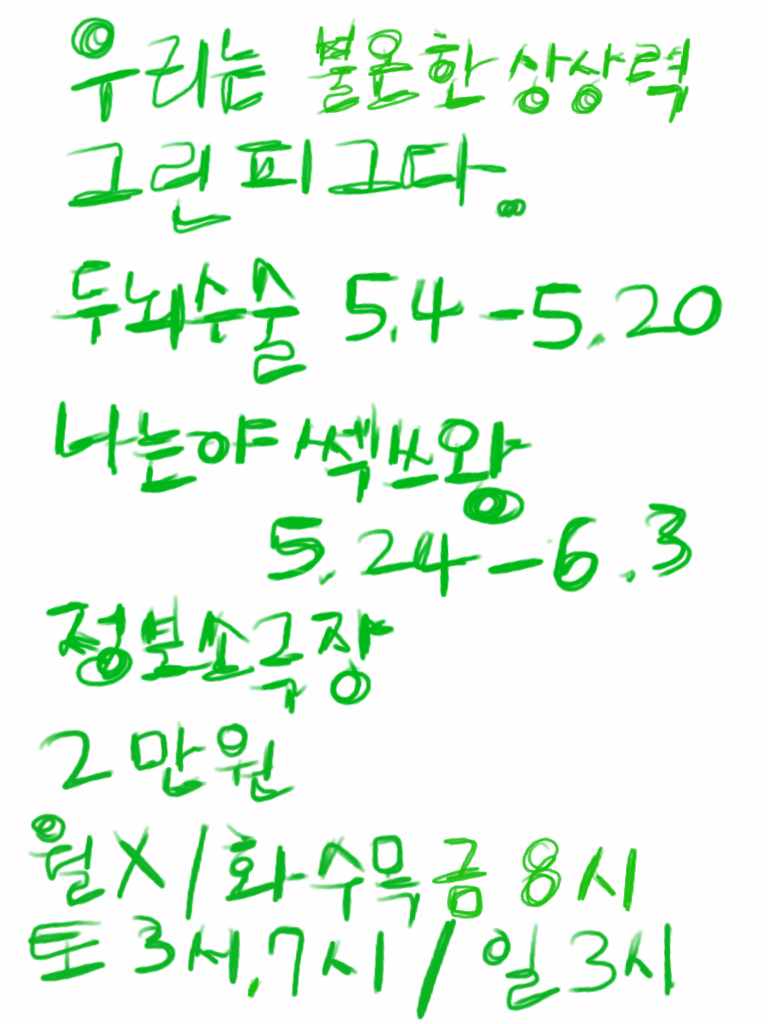 우리는 불온한 상상력
그린피그다.
두뇌수술 5.4-5.20
나는야 쎅쓰왕
5.24-6.3
정보소극장
2만원
월X/화수목금 8시
토3서,7시/일3시